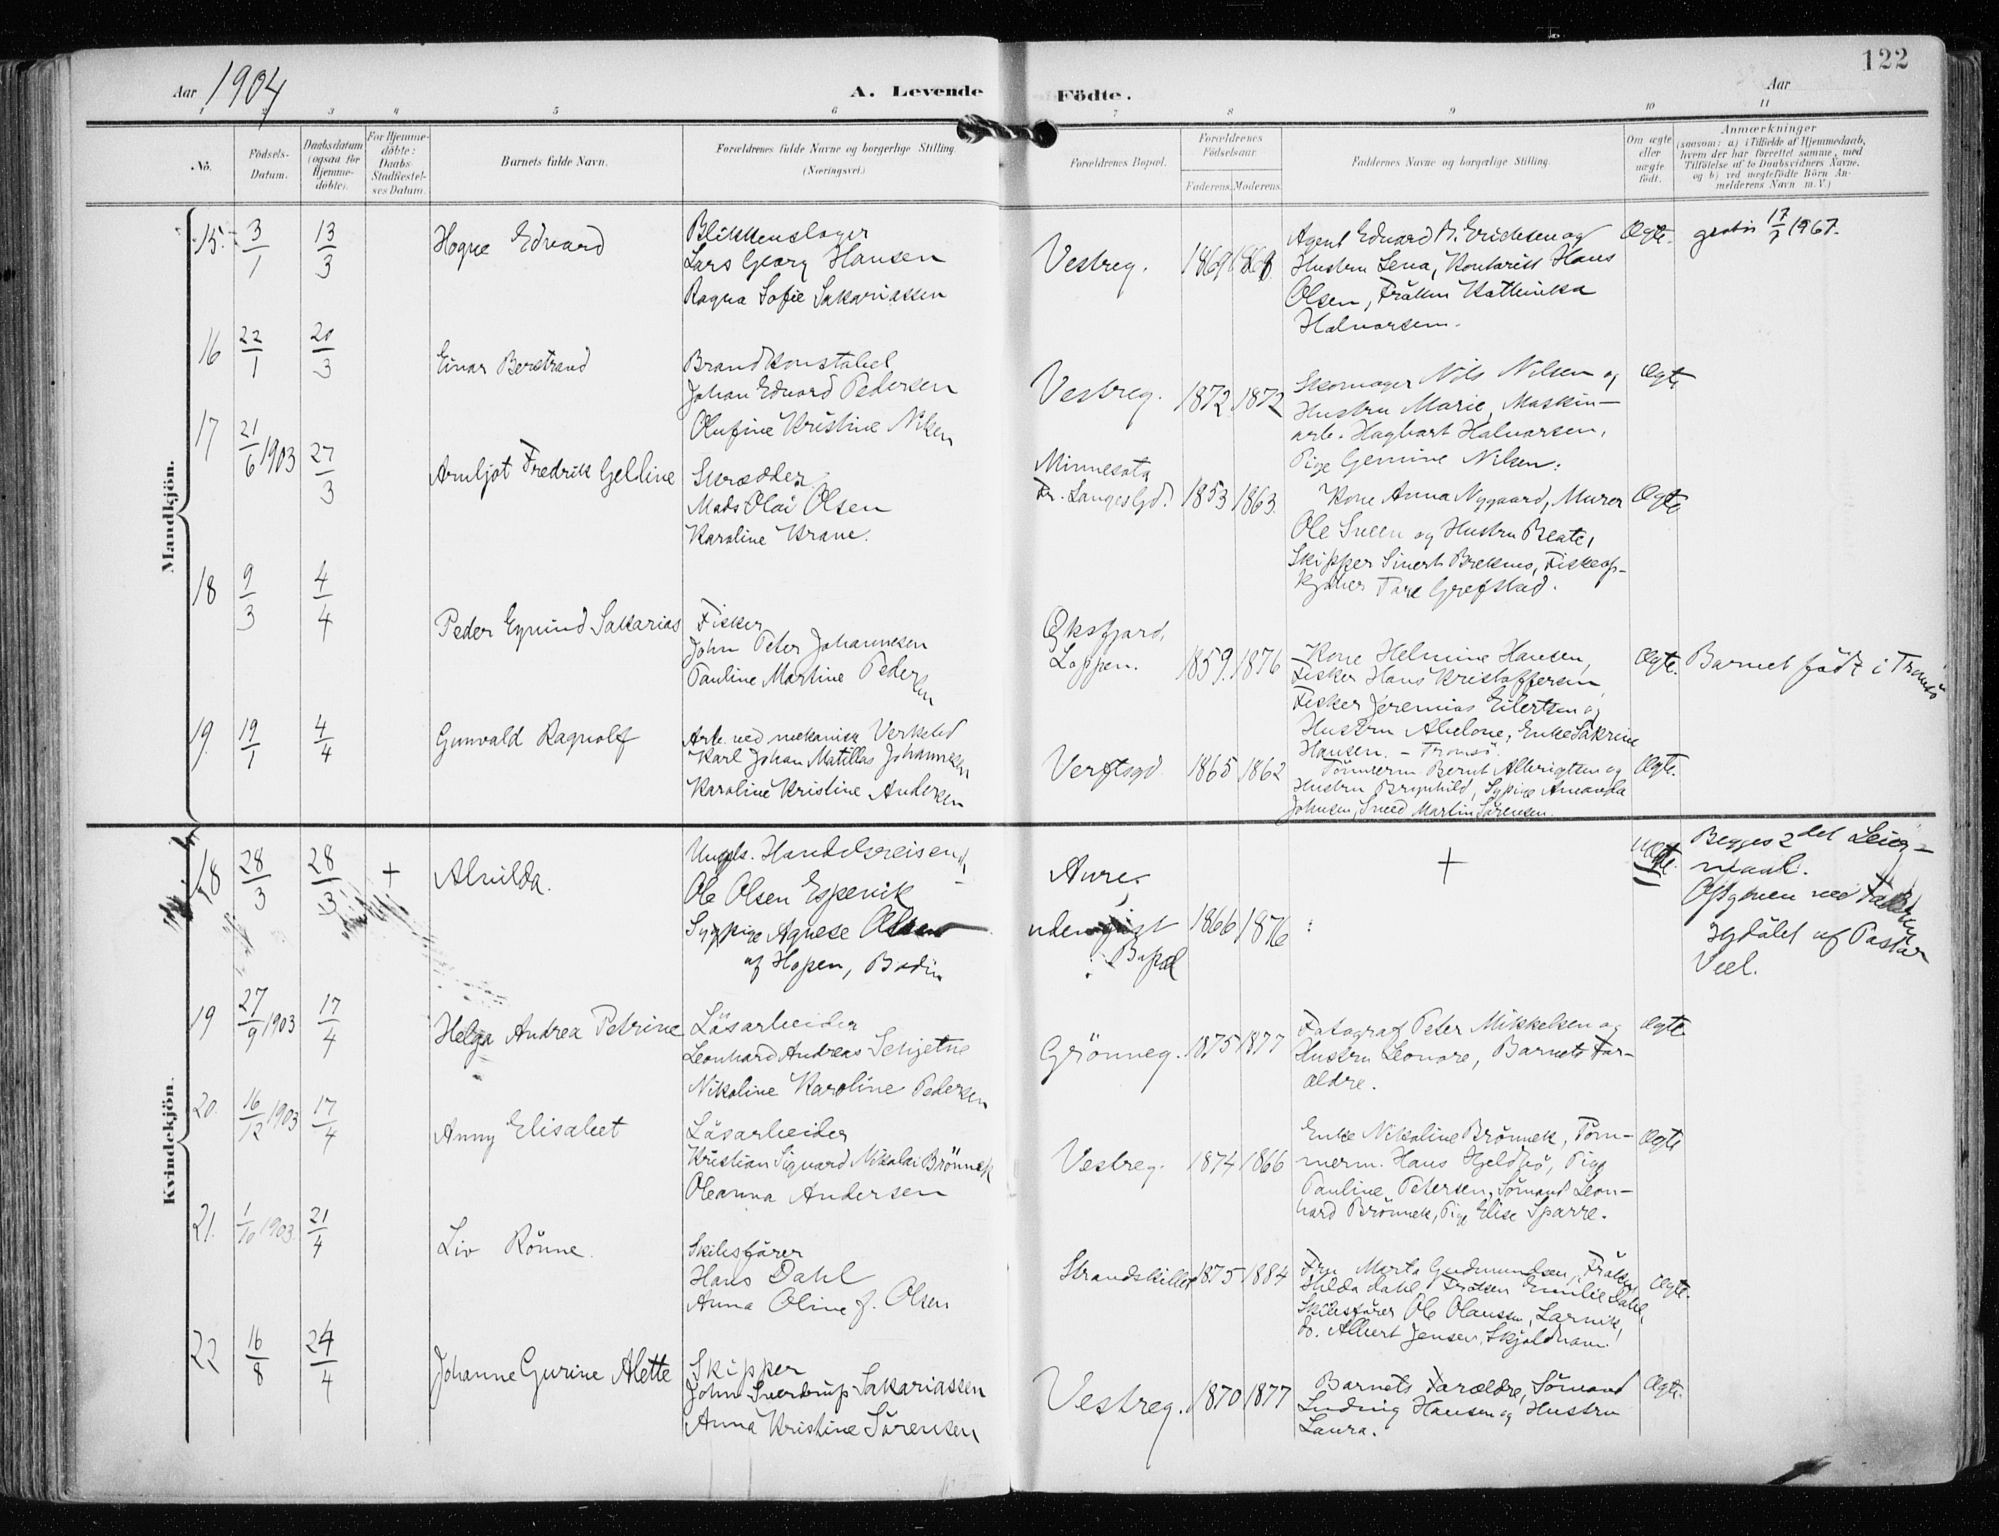 122
Aar 1904
A. Levende Födte.
Aar
1 2 3 4 5 6 7 8 9 10 11
No.
Födsels-Datum.
Daabsdatum (ogsaa for Hjemme-döbte).
For Hjemme-döbte: Daabs Stadfæstel-ses Datum.
Barnets fulde Navn.
Forældrenes fulde Navne og borgerlige Stilling. (Næringsvei.)
Forældrenes Bopæl.
Forældrenes Födselsaar.
Faderens. Moderens.
Faddernes Navne og borgerlige Stilling.
Om ægte eller uægte født.
Anmærkninger
(saasom: a) i Tilfælde af Hjemmedaab, hvem der har forrettet samme, med Tilföielse af to Daabsvidners Navne, og b) ved uægtefödte Börn An-melderens Navn m. V.)
Mandkjön.
15. 3/1 13/3 Hogne Edvard
Blikkenslager
Lars Georg Hansen
Ragna Sofie Sakariassen
Vestreg. 1869 1868
Agent Edvard A. Erichsen og
Hustru Lena, Kontorist Hans
Olsen, Fröken Kathinka
Halvorsen.
Ægte.
17/7 1967.
16 22/1 20/3 Einar Berstrand
Brandkonstabel
Johan Edvard Pedersen
Olufine Kristine Nilsen
Vestreg. 1872 1872
Skomager Nils Nilsen og
Hustru Marie, Maskin-
arb. Hagbart Halvorsen,
Pige Gemine Nilsen.
Ægte
17 21/6 1903 27/3 Arnljot Fredrik Geldine
Skrædder
Mads Olai Olsen
Karoline Krane.
Minnesota
Fr. Langesgd. 1853 1863.
Kone Anna Nygaard, Murer
Ole Sneen og Hustru Beate,
Skipper Sivert Breknes, Fiskeop-
kjøber Tore Grefstad.
Ægte
18 9/3 4/4 Peder Eyvind Sakarias
Fisker
John Peter Johannesen
Pauline Martine Pedersen
Øksfjord,
Loppen. 1859 1876
Kone Helmine Hansen,
Fisker Hans Kristoffersen,
Fisker Jeremias Eilertsen og
Hustru Abelone, Enke Sakrine
Hansen. - Tromsö.
Ægte.
Barnet födt i Tromsö
19. 19/1 4/4 Gunvald Ragnolf
Arb. ved mekanisk Verksted
Karl Johan Matillas Johannesen
Karoline Kristine Andersen
Verftsgd. 1865 1862
Tömmerm. Bernt Albrigtsen og
Hustru Brynhild, Sypige Amanda
Johnsen, Smed Martin Sörensen.
Ægte.
Kvindekjön.
18 28/3 28/3 + Alvilda.
Ungk. Handelsreisende
Ole Olsen Espenik
Sypige Agnese Olsen
af Hopen, Bodin
Aure.
uden fast
Bopæl
1866 1876
+
uægte.
Begges 2det Leier-
maal.
Hjdöbt af Pastor
19 27/9 1903 17/4 Helga Andrea Petrine
Läsarbeider
Leonhard Andreas Schjetne
Nikoline Karoline Pedersen
Grönneg. 1875 1877
Fotograf Peter Mikkelsen og
Hustru Leonore, Barnets For-
ældre.
Ægte
20. 16/12 1903 17/4 Anny Elisabet
Läsarbeider
Kristian Sigvard Nikolai Brönnek
Oleanna Andersen
Vestreg. 1874 1866
Enke Nikoline Brönnek, Töm-
merm. Hans Hjeldnö, Pige
Pauline Petersen, Sömand Leon-
hard Brönnek, Pige Elise Sparre.
Ægte
21. 1/10 1903. 21/4 Liv Rönne.
Skibsförer
Hans Dahl
Anna Oline f. Olsen
Strandskillet 1875 1884
Fru Marta Gudmundsen, Fröken
Hilda Dahl, Fröken Emilie Dahl,
Skibsförer Ole Olaussen, Larvik,
do. Albert Jensen, Skjoldhavn.
Ægte.
22 16/8 24/4 Johanne Gurine Alette
Skipper
John Sverdrup Sakariassen
Anna Kristine Sörensen
Vestreg. 1870 1877
Barnets Forældre, Sömand
Ludvig Hansen og Hustru
Laura.
Ægte.